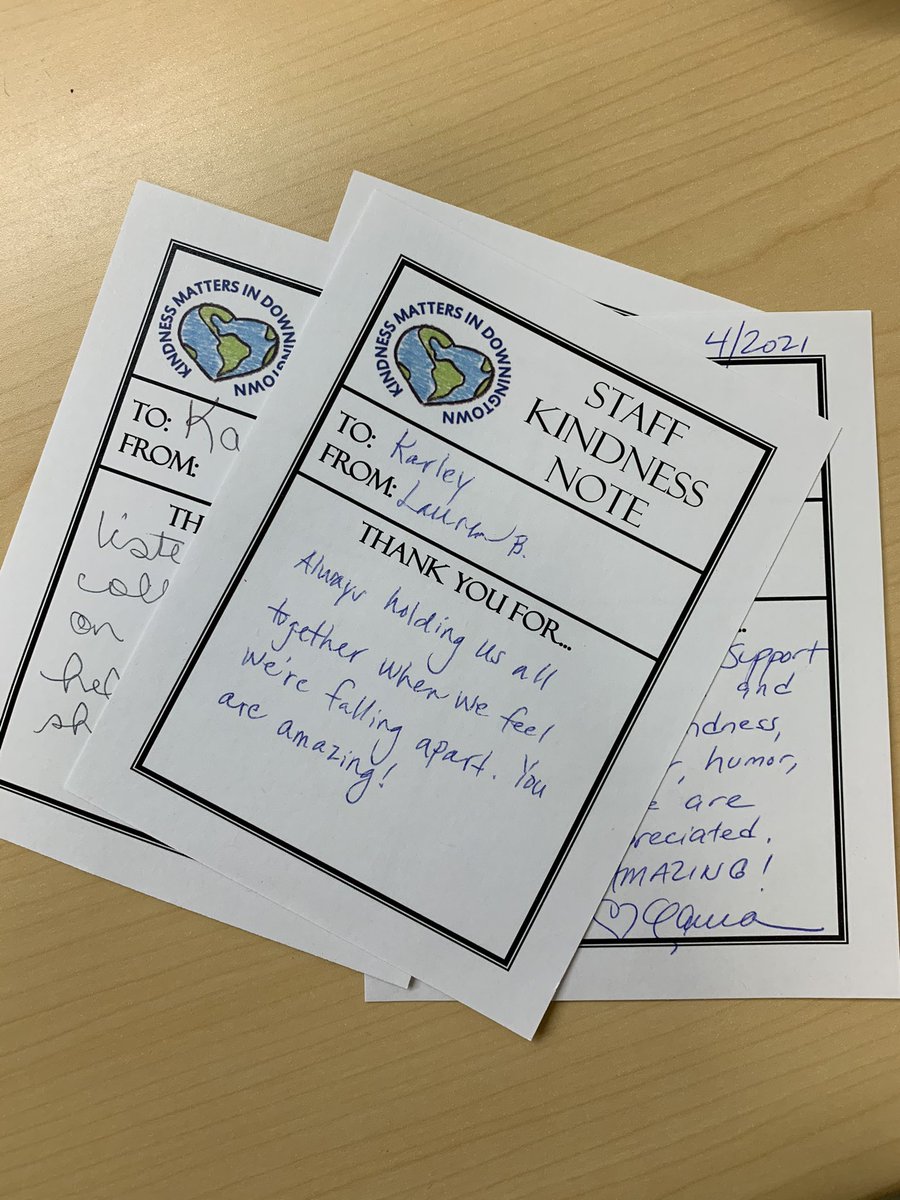 KINDNESS MATTERS IN DOWNINGTOWN
TO: Ka
FROM:
TH
liste
coll
on
hel
sh
KINDNESS MATTERS IN DOWNINGTOWN
STAFF
KINDNESS
NOTE
TO: Karley
FROM: Lauren B.
THANK YOU FOR...
Always holding us all
together when we feel
we're falling apart. You
are amazing!
4/2021
...
support
and
ndness,
r, humor,
e are
reciated.
MAZING!